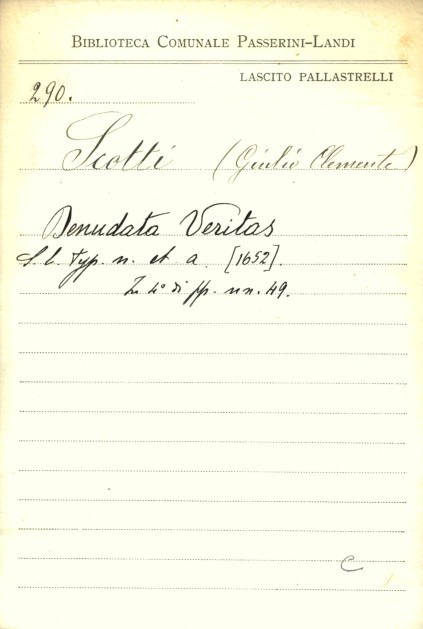 BIBLIOTECA COMUNALE PASSERINI-LANDI
LASCITO PALLASTRELLI
290.
Scotti (Giulio Clemente)
Denudata Veritas
S. l. typ. n. et a. [1652].
In 4° di pp. nn. 49.
C